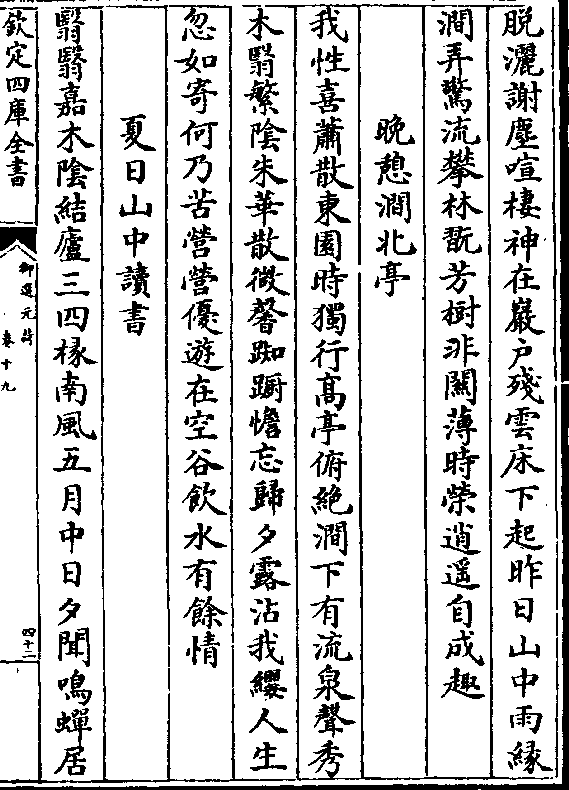 脱灑謝塵喧棲神在巖户殘雲床下起昨日山中雨緣
澗弄驚流攀林翫芳樹非關薄時榮逍遥自成趣
晚憩澗北亭
我性喜蕭散東園時獨行髙亭俯絶澗下有流泉聲秀
木翳繁陰朱華散微馨踟蹰憺忘歸夕露沾我纓人生
忽如寄何乃苦營營優遊在空谷飲水有餘情
夏日山中讀書
翳翳嘉木陰結廬三四椽南風五月中日夕聞鳴蟬居
欽定四庫全書
御選元詩
卷十九
四十二